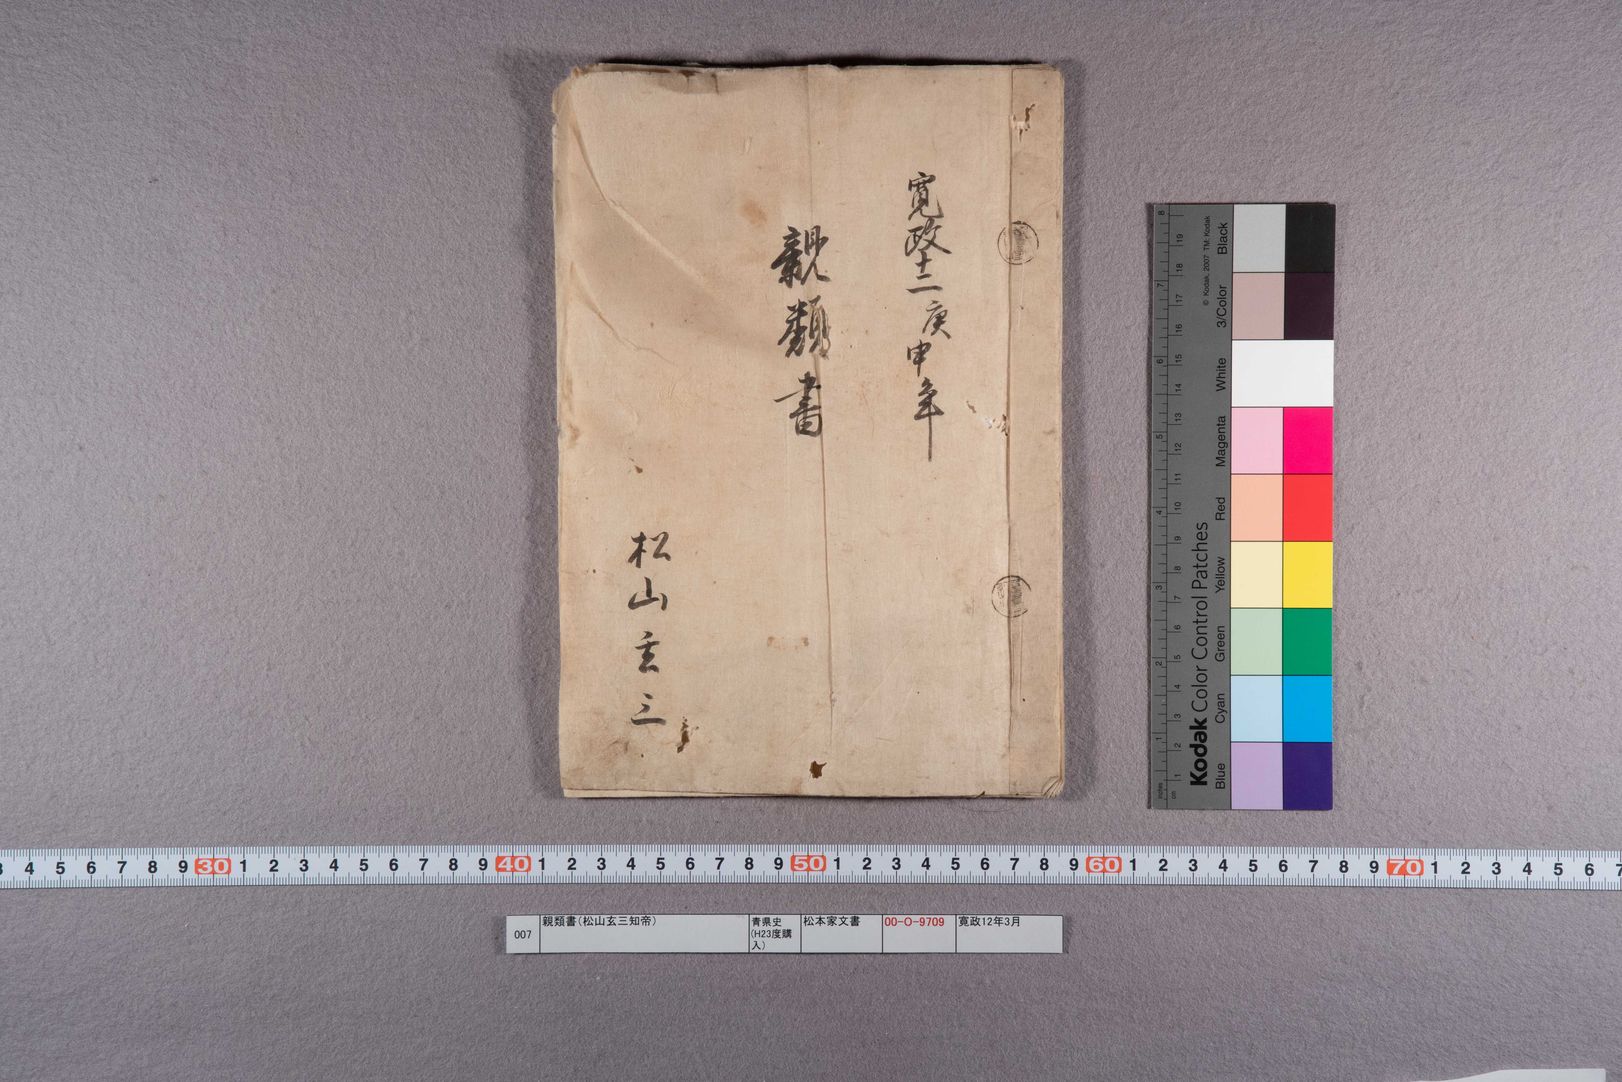 寛政十二庚申年
親類書
松山玄三
8 7 6 5 4 3 2 1 inches
19 18 17 16 15 14 13 12 11 10 9 8 7 6 5 4 3 2 1 cm
© Kodak, 2007 TM: Kodak
Kodak Color Control Patches
Blue Cyan Green Yellow Red Magenta White 3/Color Black
3 4 5 6 7 8 9 30 1 2 3 4 5 6 7 8 9 40 1 2 3 4 5 6 7 8 9 50 1 2 3 4 5 6 7 8 9 60 1 2 3 4 5 6 7 8 9 70 1 2 3 4 5 6 7
007 親類書(松山玄三知帝) 青県史(H23度購入) 松本家文書 00-O-9709 寛政12年3月